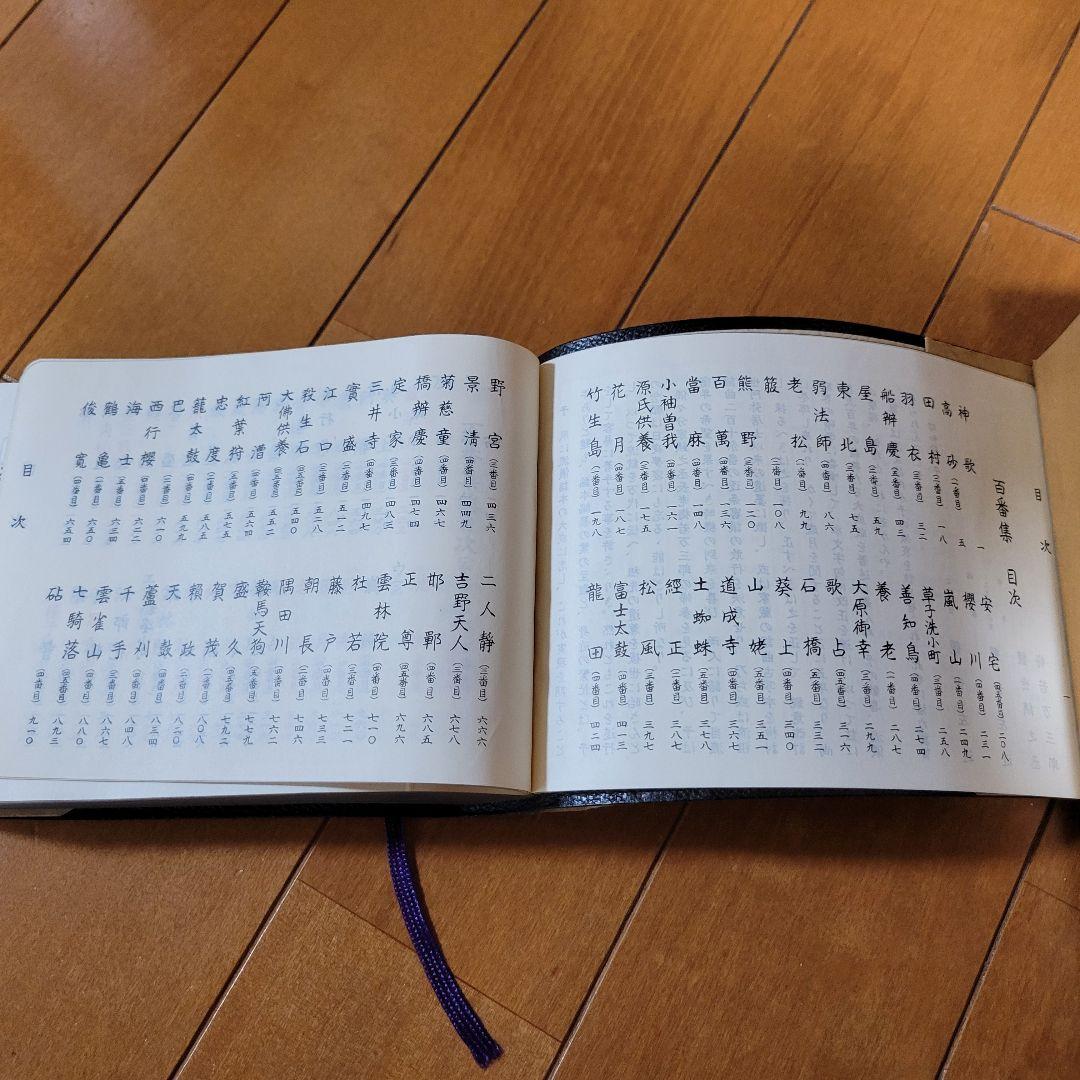 目次
一
百番集 目次
神歌 一
高砂 (一番目) 五
田村 (二番目) 一八
羽衣 (三番目) 三二
船辨慶 (五番目) 四三
屋島 (二番目) 五九
東北 (三番目) 七五
弱法師 (四番目) 八六
老松 (一番目) 九九
箙 (二番目) 一〇八
熊野 (三番目) 一二〇
百萬 (四番目)
當麻 (五番目)
小袖曽我 (四番目) 一六一
源氏供養 (三番目) 一七五
花月 (四番目) 一八七
竹生島 (一番目) 一九八
安宅 (四五番目) 二〇八
櫻川 (四番目) 二三一
嵐山 (一番目) 二四九
草子洗小町 (三番目) 二五八
善知鳥 (四番目) 二七四
養老 (一番目) 二八七
大原御幸 (三番目) 二九九
歌占 (四番目) 三一六
石橋 (五番目) 三三二
葵上 (四番目) 三四〇
山姥 (五番目) 三五一
道成寺 (四番目) 三六七
土蜘蛛 (五番目)
經正 (二番目)
松風 (三番目) 三九七
富士太鼓 (四番目) 四一三
龍田 (四番目) 四二四
野宮 (三番目) 四三六
景清 (四番目) 四四九
菊慈童 (四番目) 四六七
橋辨慶 (四番目) 四七四
定家 (三番目) 四八三
三井寺 (四番目) 四九七
實盛 (二番目) 五一二
江口 (三番目) 五二八
殺生石 (五番目) 五四〇
大佛供養 (四五番目)
阿漕 (四番目)
紅葉狩 (五番目) 五七五
忠度 (二番目) 五八五
籠太鼓 (四番目) 五九九
巴 (二番目)
西行櫻 (四番目) 六二〇
海士 (五番目) 六三四
鶴亀 (一番目) 六五〇
俊寛 (四番目) 六五四
二人静 (三番目) 六六六
吉野天人 (三番目) 六七八
邯鄲 (四番目) 六八五
正尊 (四五番目) 六九六
雲林院 (四番目) 七一〇
杜若 (三番目) 七二一
藤戸 (四番目) 七三三
朝長 (二番目)
隅田川 (四番目) 七六二
鞍馬天狗 (五番目)
盛久 (四番目) 七九二
賀茂 (一番目) 八〇八
頼政 (二番目)
天鼓 (四番目) 八三四
蘆刈 (四番目) 八四八
千手 (三番目)
雲雀山 (四番目) 八八〇
七騎落 (四番目) 八九三
砧 (四番目) 九一〇
目次